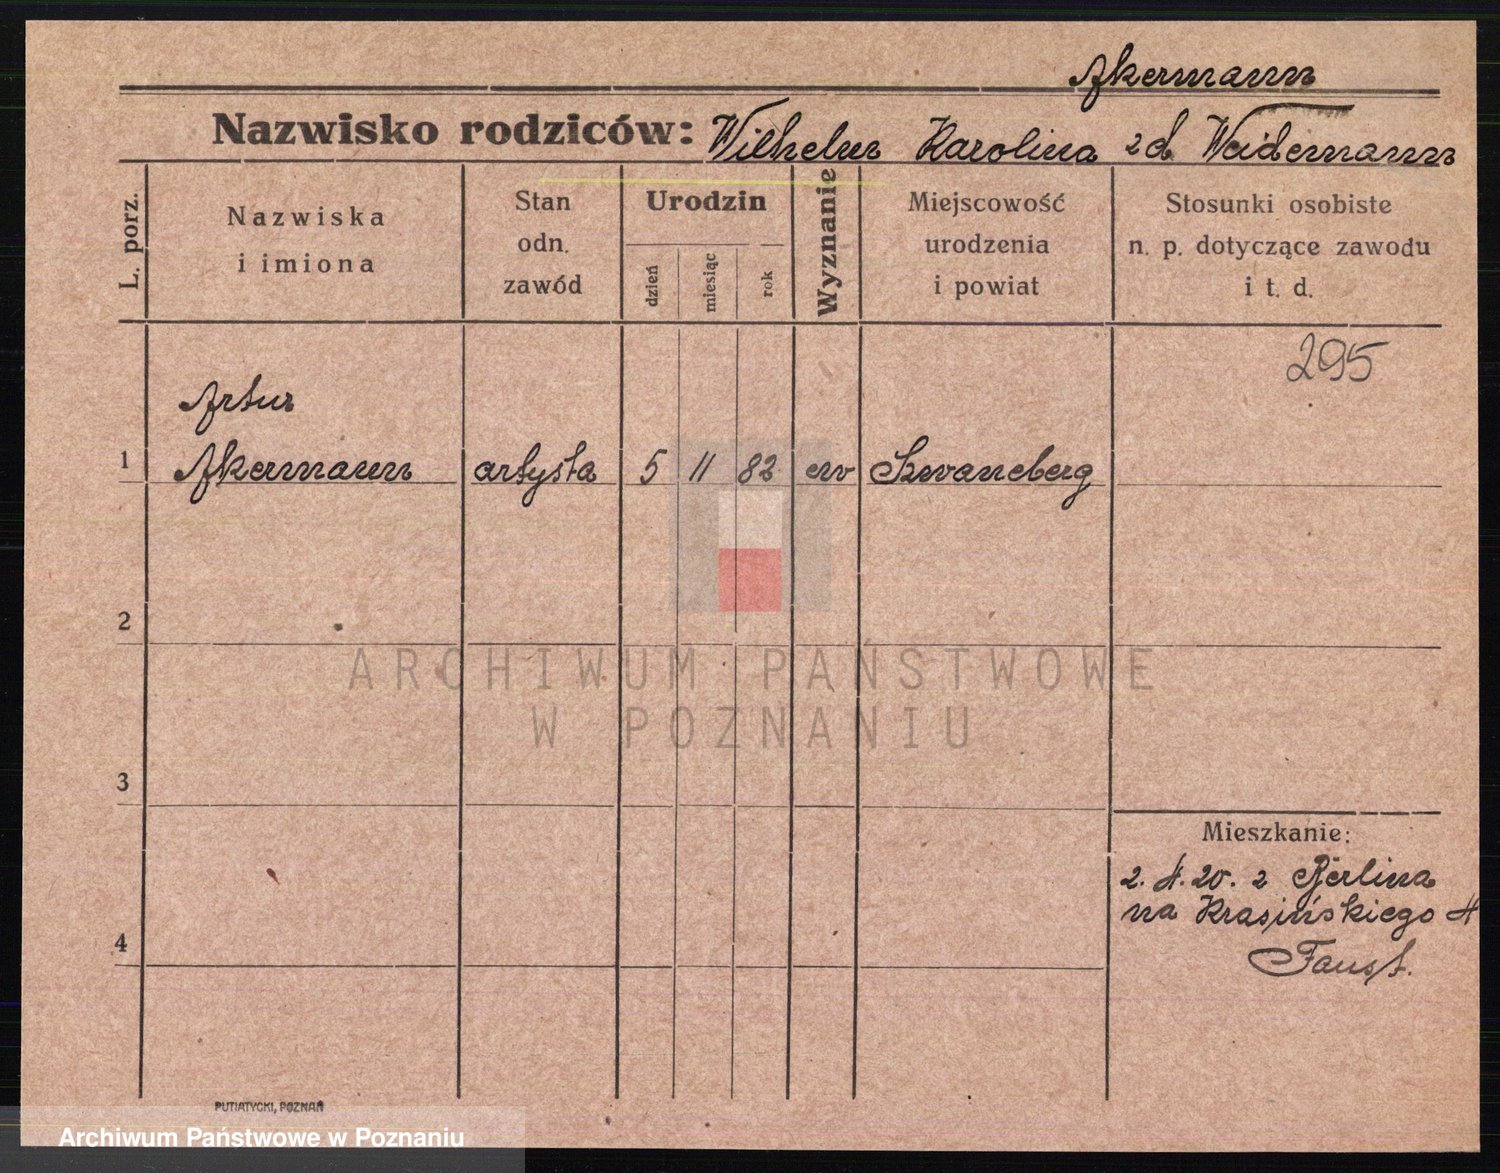 Akermann
Nazwisko rodziców: Wilhelm Karolina zd. Weidemann
L. porz.
Nazwiska
i imiona
Stan
odn.
zawód
Urodzin
dzień
miesiąc
rok
Wyznanie
Miejscowość
urodzenia
i powiat
Stosunki osobiste
n. p. dotyczące zawodu
i t. d.
295
Artur
1 Akermann artysta 5 11 82 ew Szwaneberg
2
ARCHIWUM PAŃSTWOWE
W POZNANIU
3
Mieszkanie:
2. 4. 20. z Berlina
na Krasińskiego 4
4
Faust.
PUTIATYCKI, POZNAŃ
Archiwum Państwowe w Poznaniu